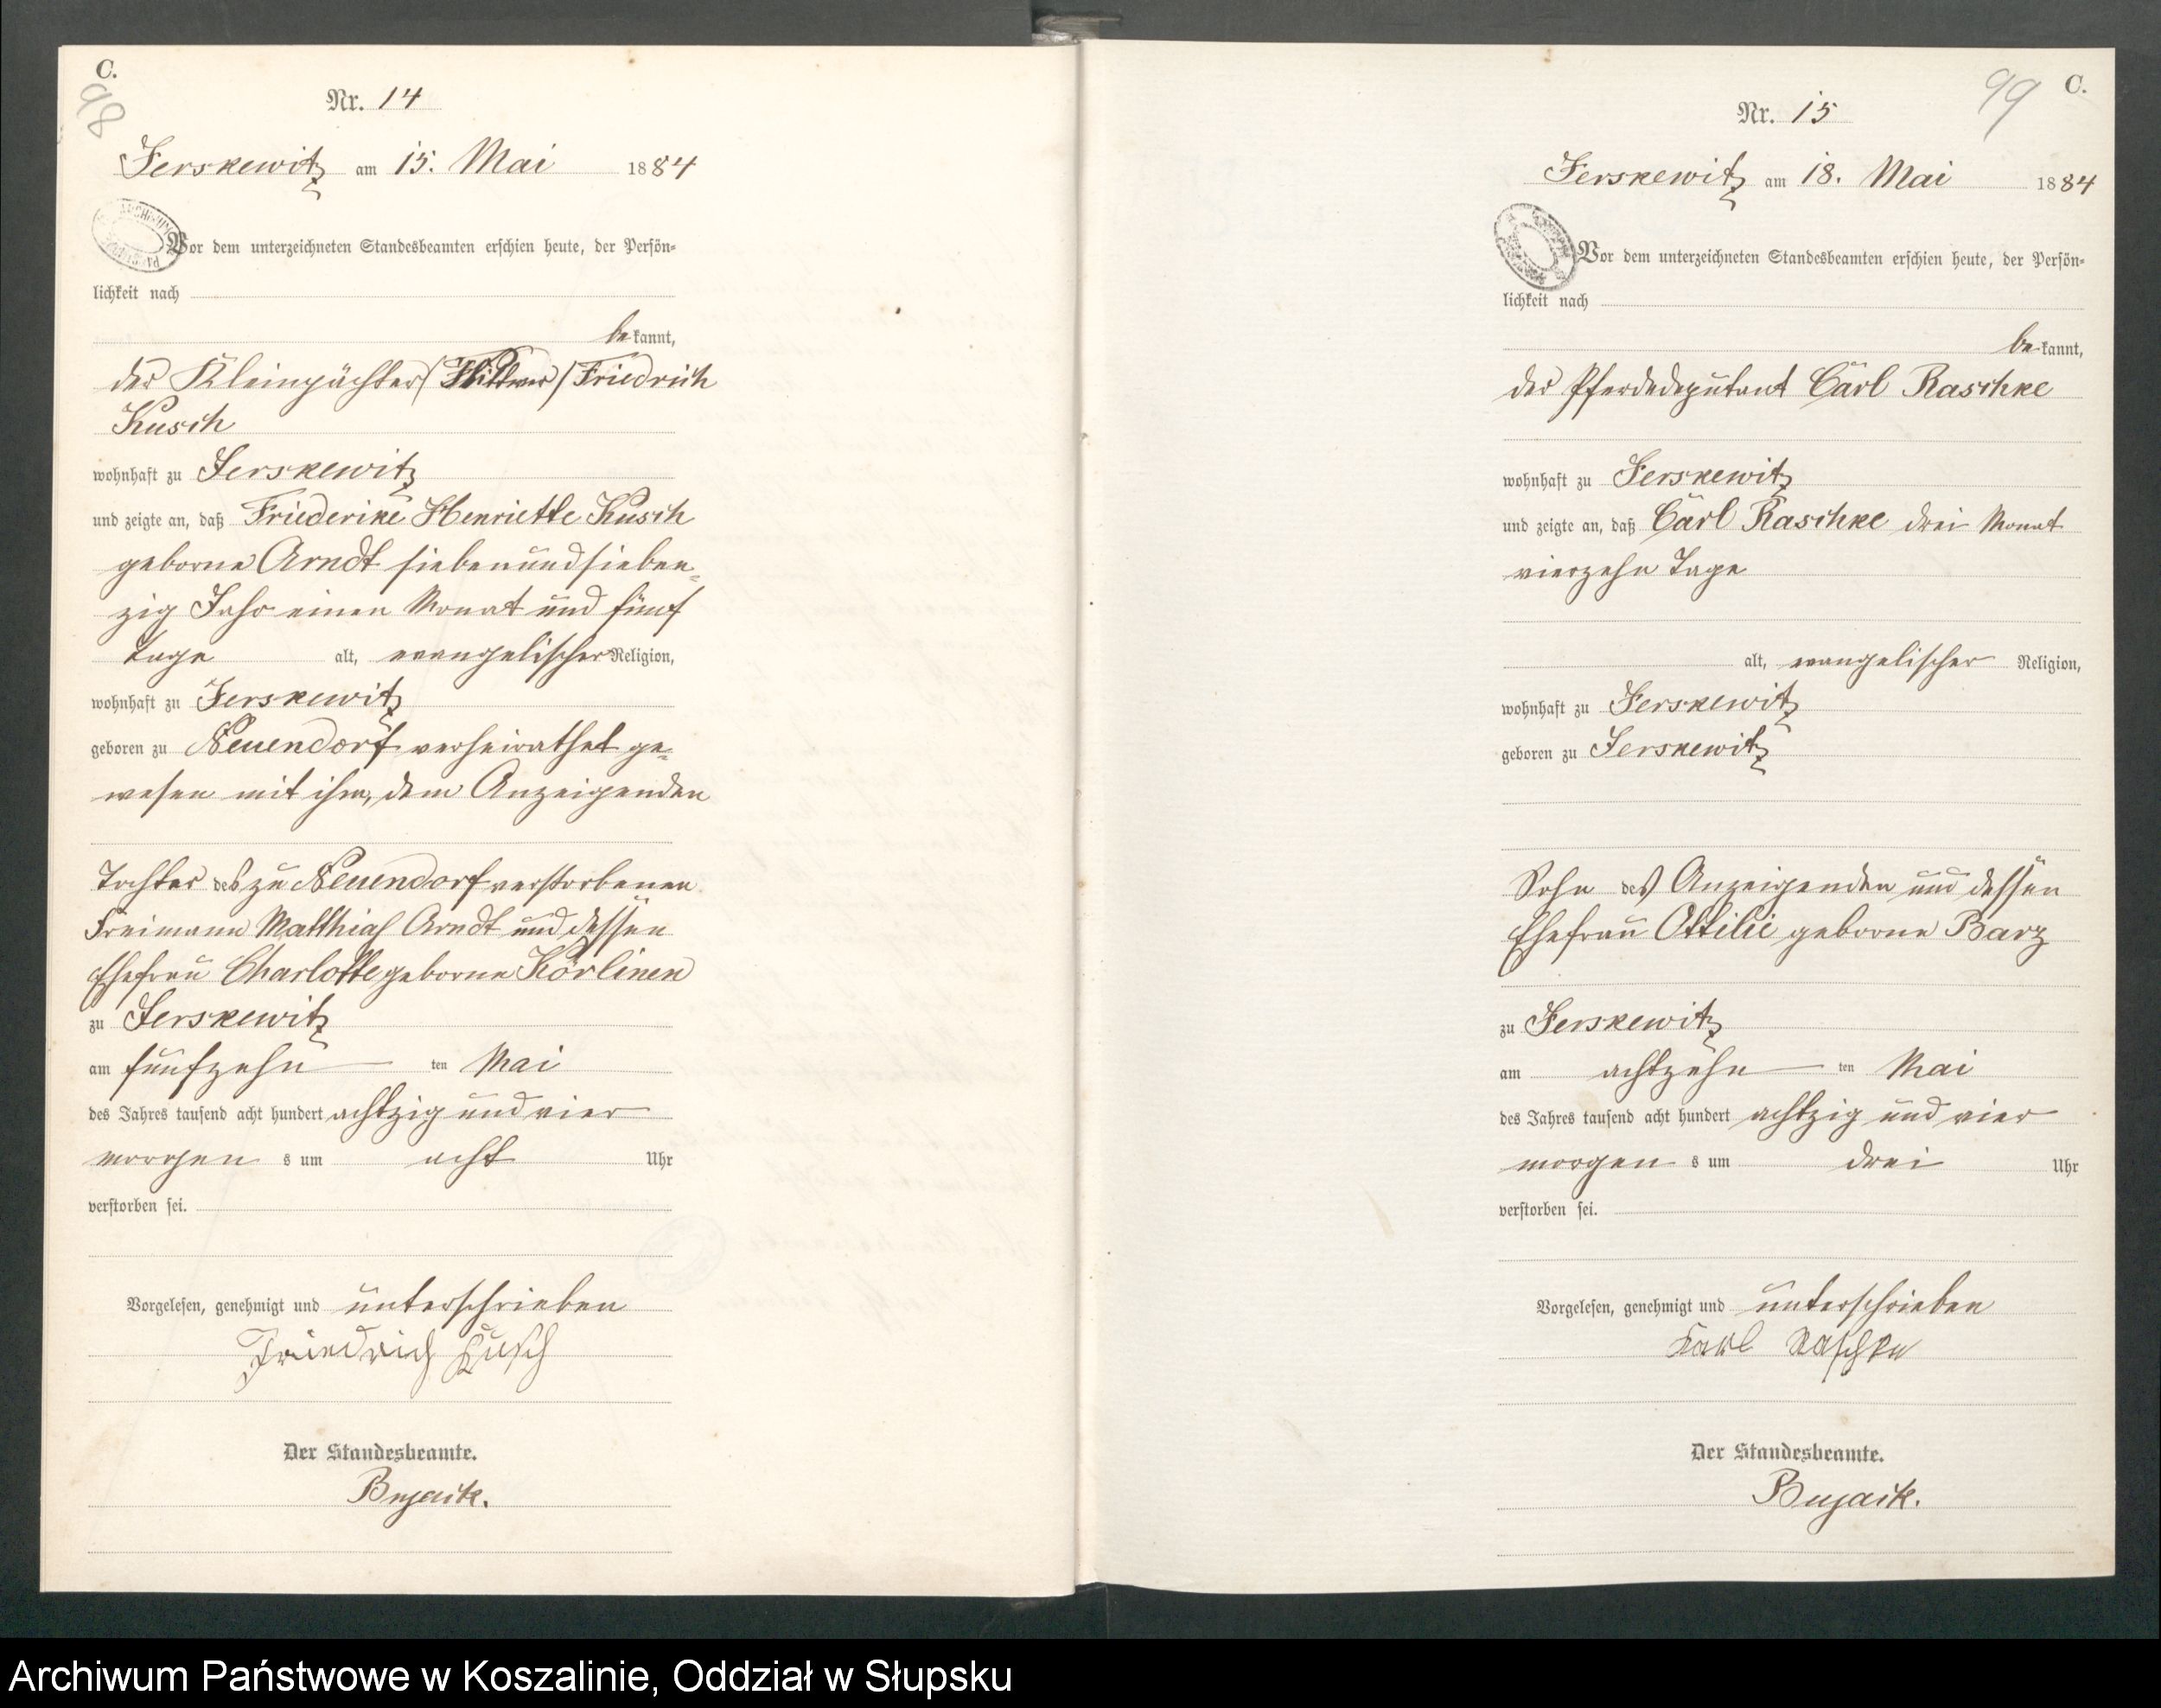 C.
98
Nr. 14
Jerskewitz am 15. Mai 1884
Vor dem unterzeichneten Standesbeamten erschien heute, der Persön-
lichkeit nach
bekannt,
der Kleinpächter (Wittwer) Friedrich
Kusch
wohnhaft zu Jerskewitz
und zeigte an, daß Friederike Henriette Kusch
geborne Arndt siebenundsieben-
zig Jahr einen Monat und fünf
Tage alt, evangelischer Religion,
wohnhaft zu Jerskewitz
geboren zu Neuendorf verheirathet ge-
wesen mit ihm, dem Anzeigenden
Tochter des zu Neuendorf verstorbenen
Freimann Matthias Arndt und dessen
Ehefrau Charlotte geborne Körlinen
zu Jerskewitz
am fünfzehn ten Mai
des Jahres tausend acht hundert achtzig und vier
morgen s um acht Uhr
verstorben sei.
Vorgelesen, genehmigt und unterschrieben
Friedrich Kusch
Der Standesbeamte.
99 C.
Nr. 15
Jerskewitz am 18. Mai 1884
Vor dem unterzeichneten Standesbeamten erschien heute, der Persön-
lichkeit nach
bekannt,
der Pferdedeputant Carl Raschke
wohnhaft zu Jerskewitz
und zeigte an, daß Carl Raschke drei Monat
vierzehn Tage
alt, evangelischer Religion,
wohnhaft zu Jerskewitz
geboren zu Jerskewitz
Sohn des Anzeigenden und dessen
Ehefrau Ottilie geborne Barz
zu Jerskewitz
am achtzehn ten Mai
des Jahres tausend acht hundert achtzig und vier
morgen s um drei Uhr
verstorben sei.
Vorgelesen, genehmigt und unterschrieben
Karl Raschke
Der Standesbeamte.
Archiwum Państwowe w Koszalinie, Oddział w Słupsku